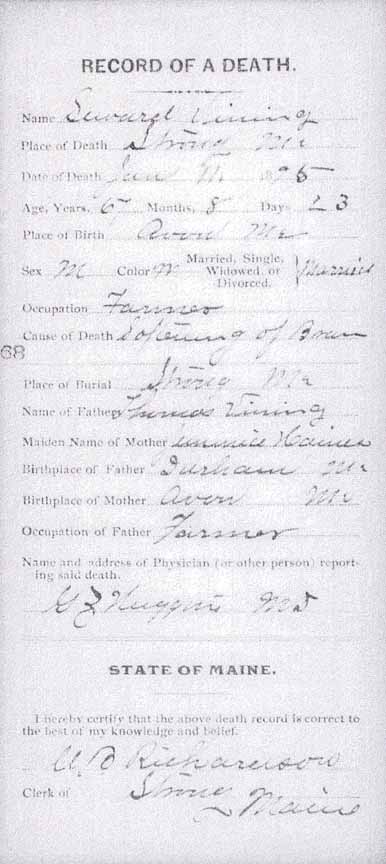 RECORD OF A DEATH.
Name Seward Vining
Place of Death Strong Me
Date of Death Jan 189
Age, Years, 67 Months, 8 Days 23
Place of Birth Avon Me
Sex M Color W Married, Single, Widowed or Divorced. Married
Occupation Farmer
Cause of Death Softening of Brain
68
Place of Burial Strong Me
Name of Father Thomas Vining
Maiden Name of Mother Haines
Birthplace of Father Durham Me
Birthplace of Mother Avon Me
Occupation of Father Farmer
Name and address of Physician (or other person) report-
ing said death.
MD
STATE OF MAINE.
I hereby certify that the above death record is correct to
the best of my knowledge and belief.
Richardson
Clerk of Strong Maine